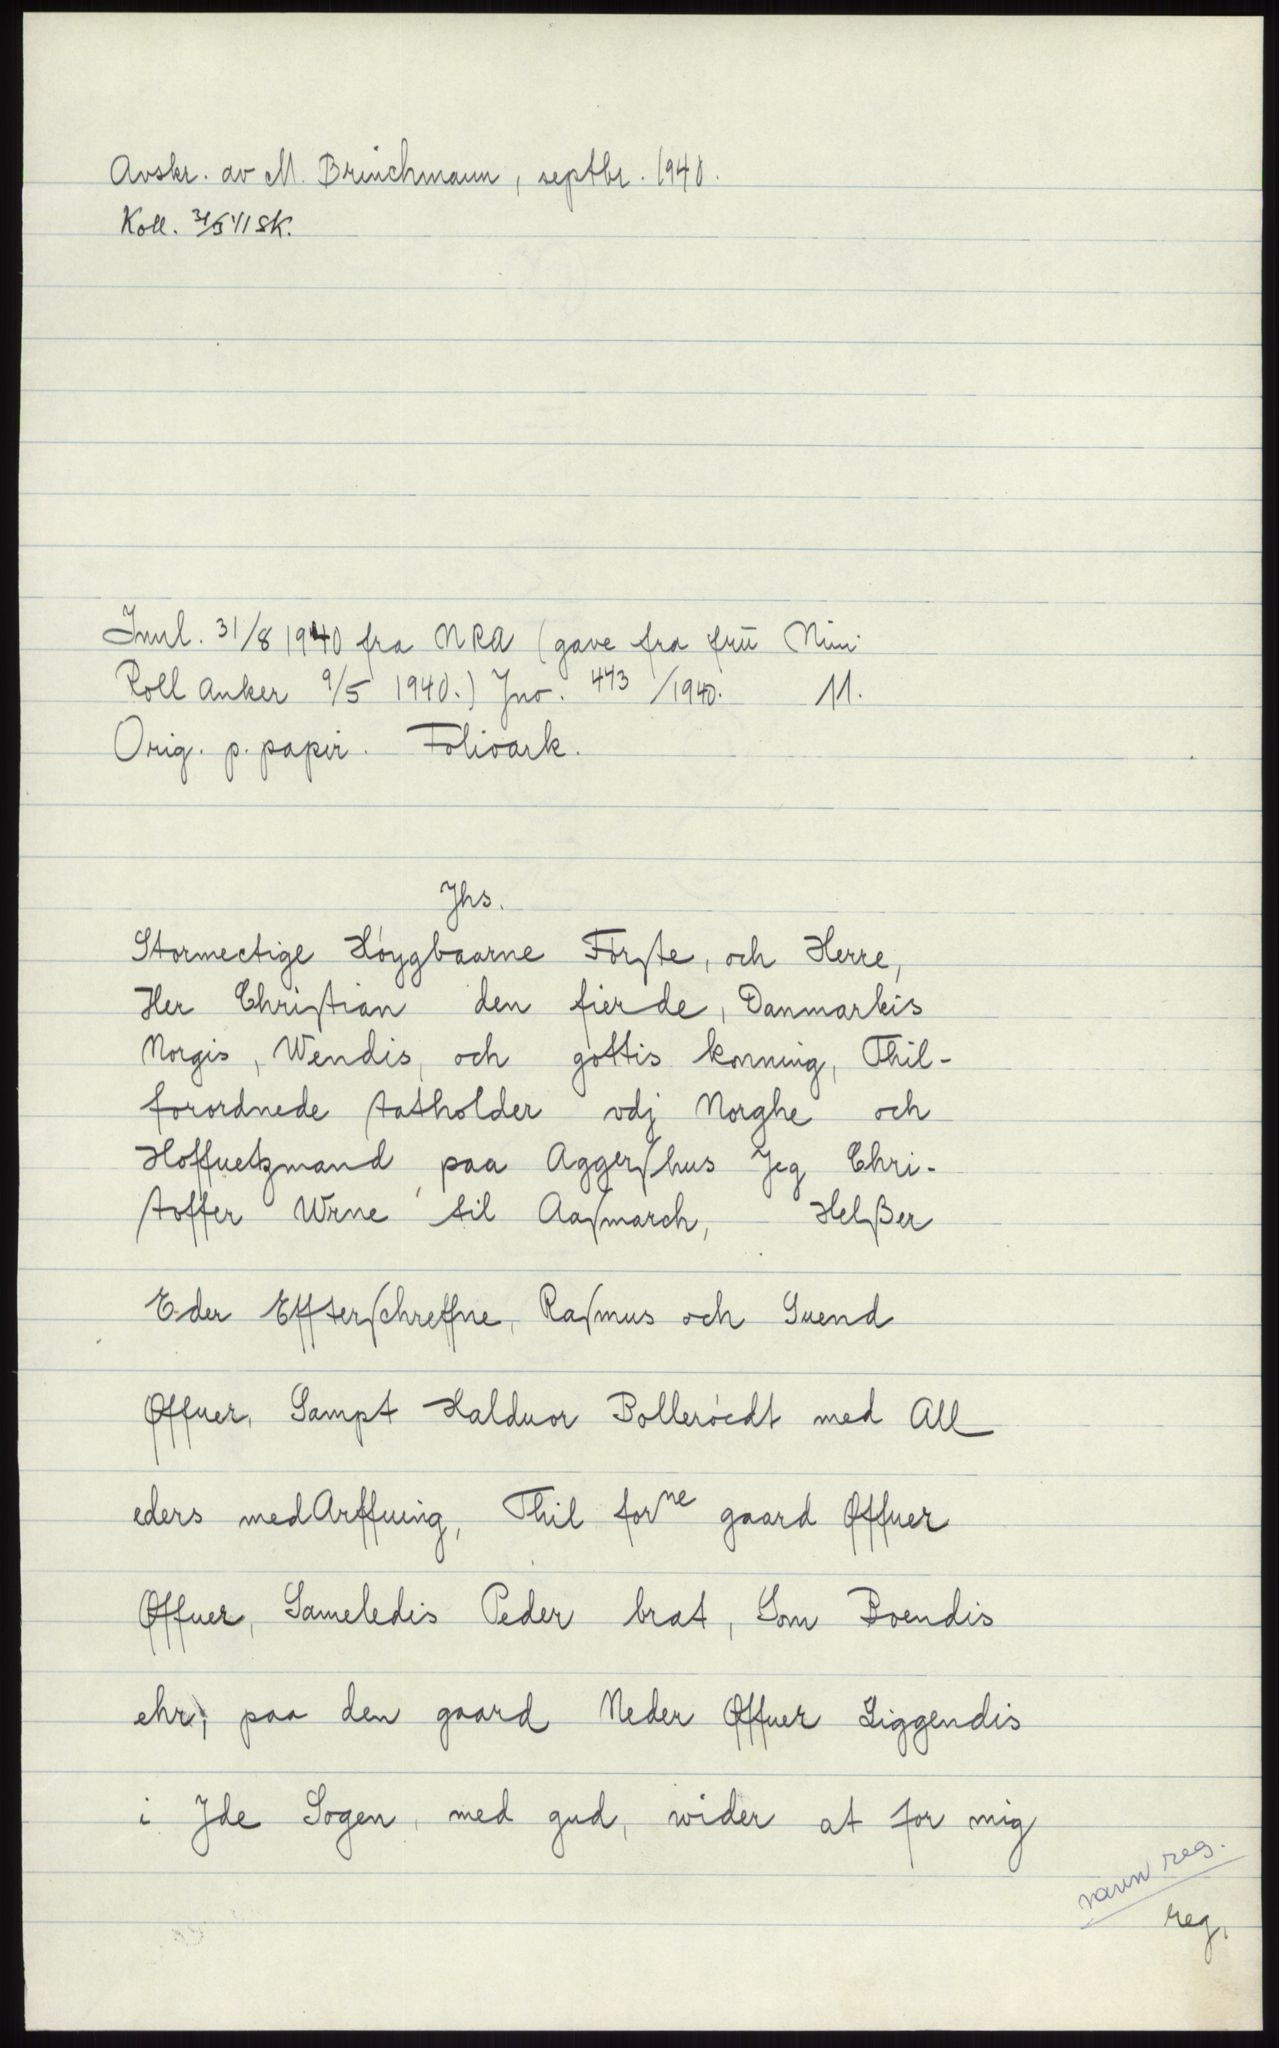 Avskr. av M. Brinchmann, septbr. 1940.
Koll. 31/5 41 SK.
Innl. 31/8 1940 fra NRA (gave fra frü Nini
Roll Anker 9/5 1940.) Jno. 473/1940. 11.
Orig. p. papir. Folioark.
Jhs.
Stormectige Høygbaarne Førſte, och Herre,
Her Chriſtian den fierde, Danmarkis
Norgis, Wendis, och gottis konning, Thil-
forordnede ſtatholder vdj Norghe och
Hoffuetzmand paa Aggerſhus Jeg Chri-
ſtoffer Wrne til Aaſmarch, Helßer
Eder Effterſchreffne, Raſmus och Suend
Øffuer, Sampt Halduor Bollerøedt med All
eders medArffuing, Thil forne gaard Øffuer
Øffuer, Sameledis Peder brat, Som Boendis
ehr, paa den gaard Neder Øffuer Liggendis
i Jde Sogen, med gud, wider at for mig
navn reg.
reg.